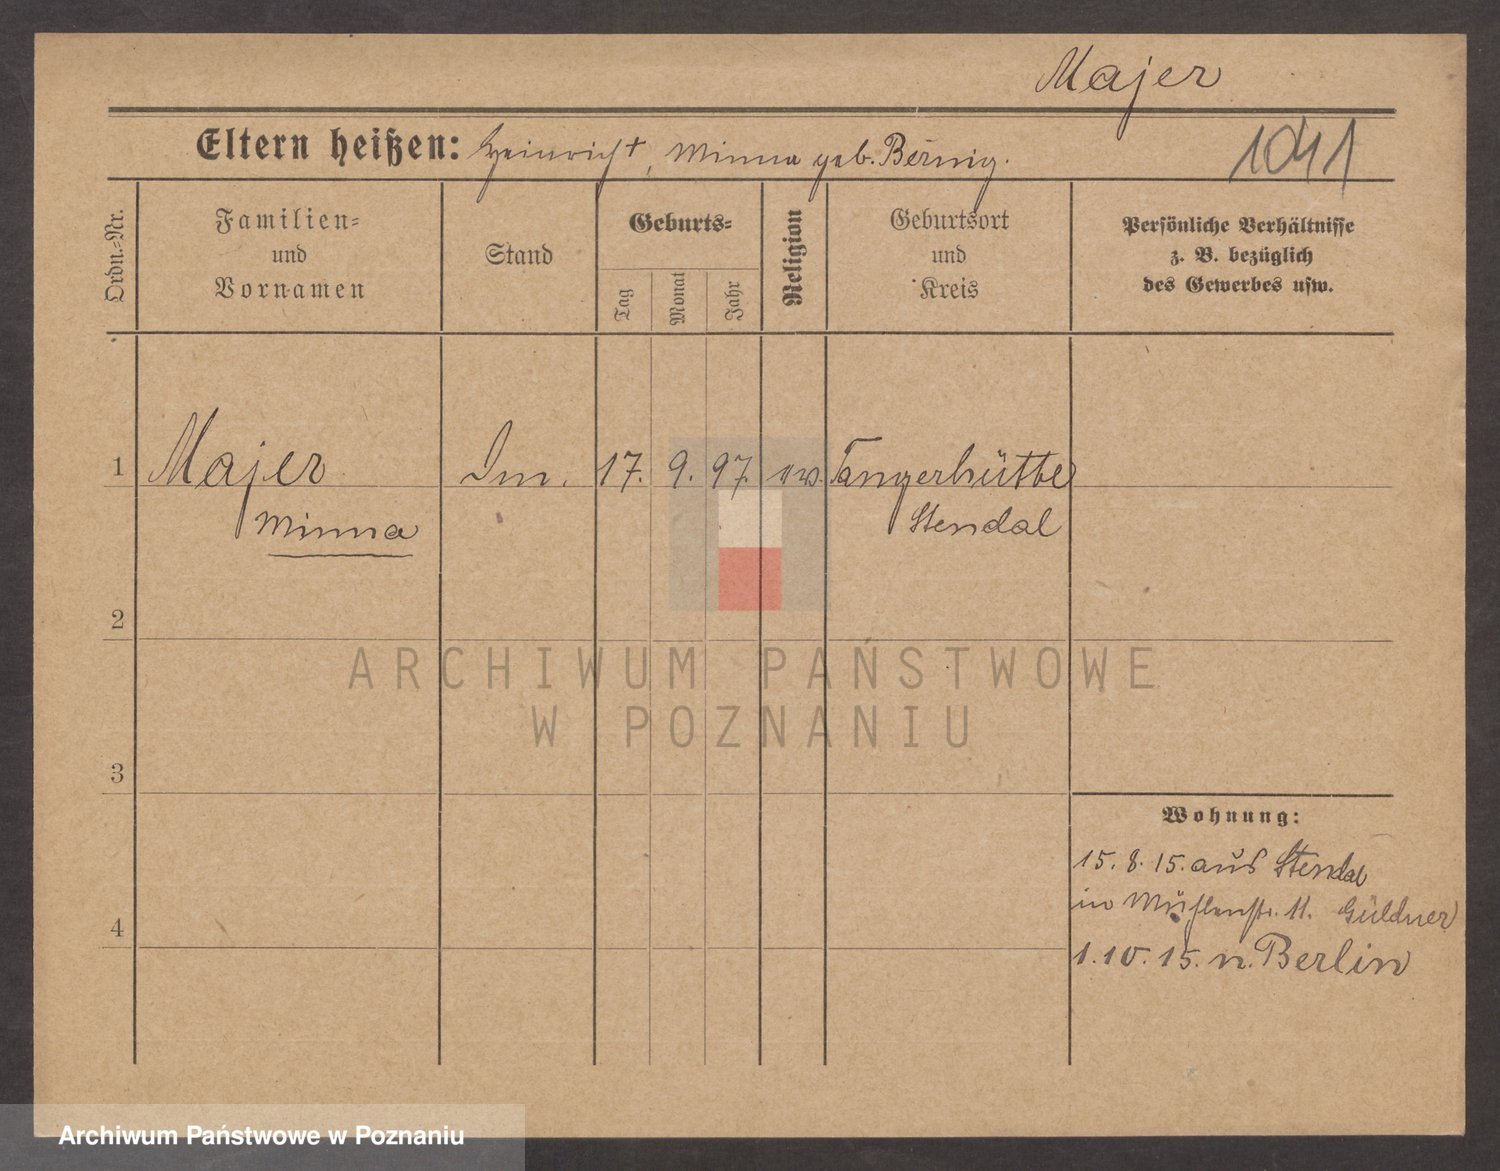 Majer
Eltern heißen: Heinrich †, Minna geb. Bernig.
1041
Ordn.=Nr.
Familien=
und
Vornamen
Stand
Geburts=
Tag
Monat
Jahr
Religion
Geburtsort
und
Kreis
Persönliche Verhältnisse
z. B. bezüglich
des Gewerbes usw.
1 Majer 17. 9. 97. ev. Tangerhütte
Minna Stendal
2
3
4
Wohnung:
15. 8. 15. aus Stendal
in Mühlenstr. 11. Güldner
1. 10. 15. n. Berlin
ARCHIWUM PAŃSTWOWE
W POZNANIU
Archiwum Państwowe w Poznaniu